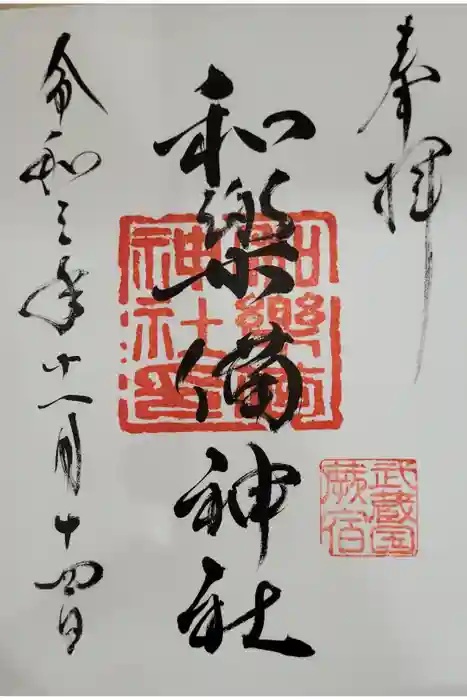 奉拝
武蔵国
蕨宿
和樂備神社
和樂備
神社印
令和三年十一月十四日